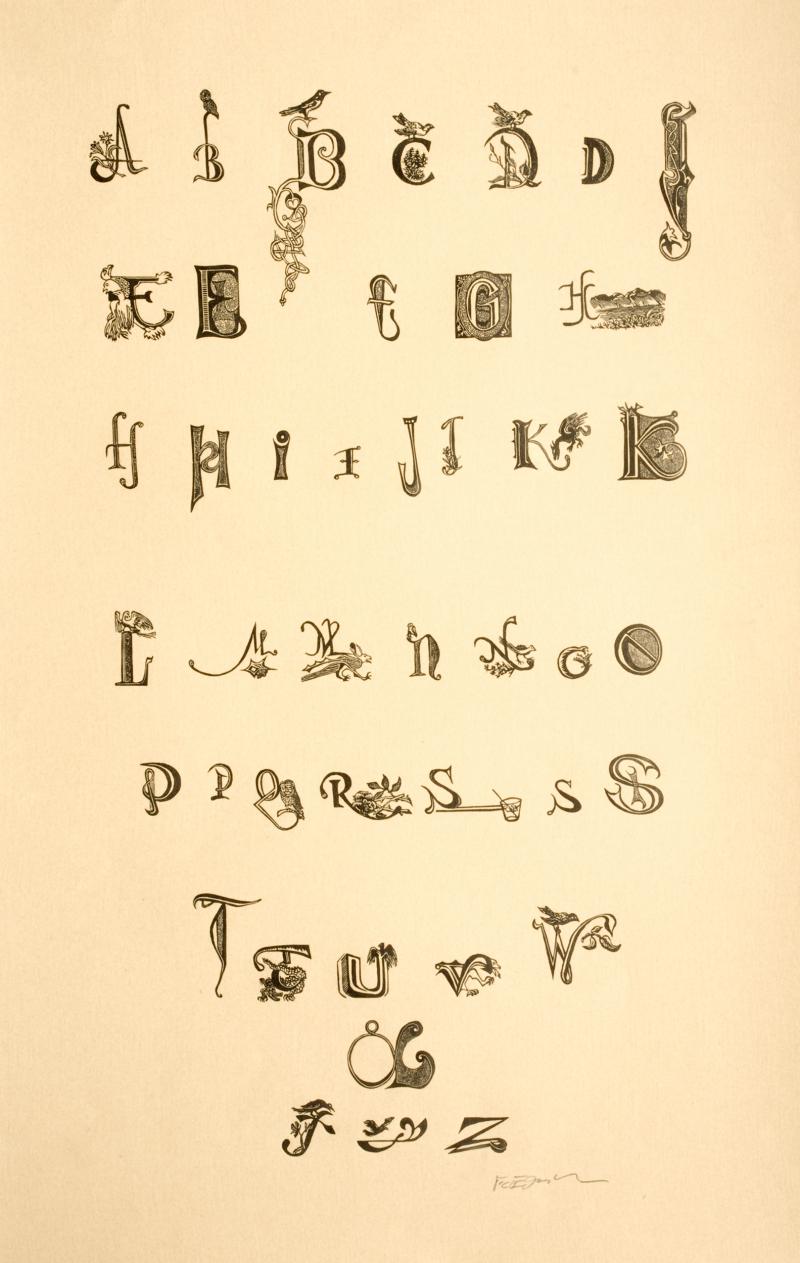 A B B C D D I
E E f G H
H H i I J J K K
L M M n N O O
P P Q R S S S
T T U V W
Y Z